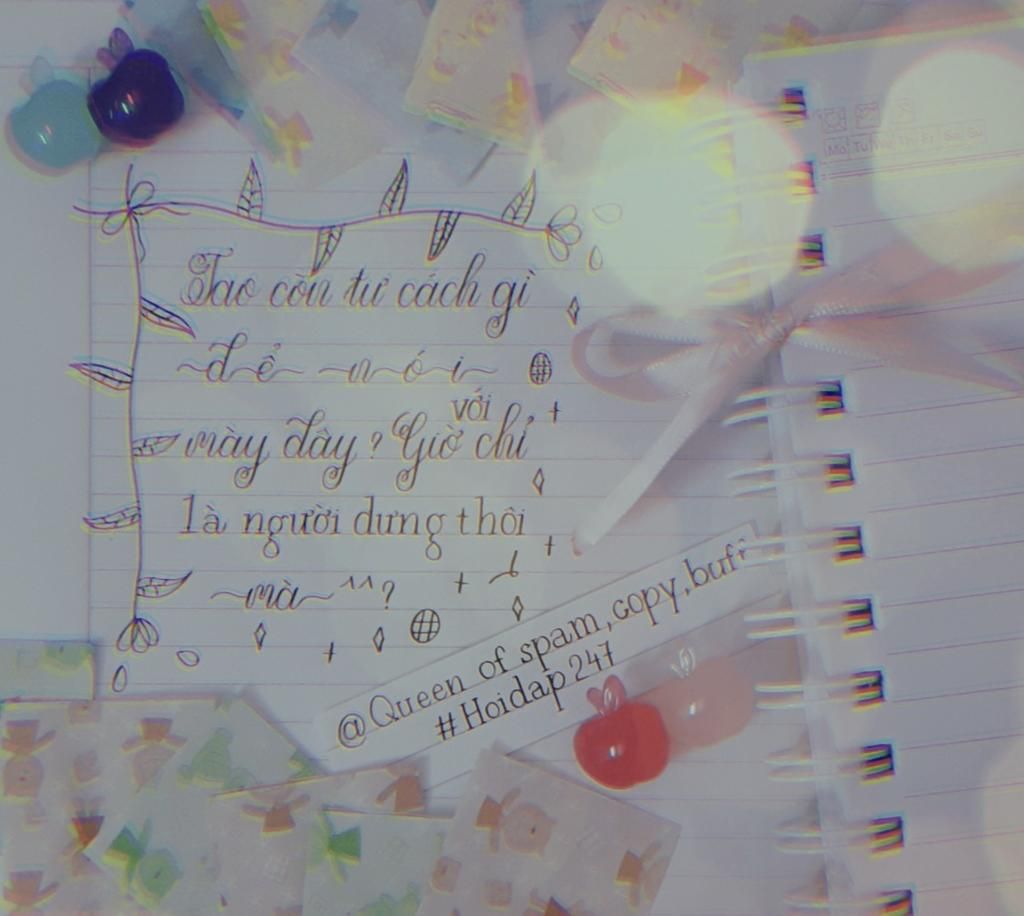 Tao còn tư cách gì
~để~ ~nói~
với
mày đây? Giờ chỉ
là người dưng thôi
~mà~ ^^?
@Queen of spam, copy, buff
#Hoidap247
Mo Tu We Th Fr Sa Su